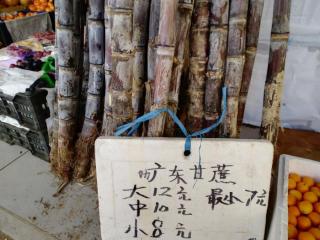 广东甘蔗
大 12元 最小7元
中 10元
小 8元